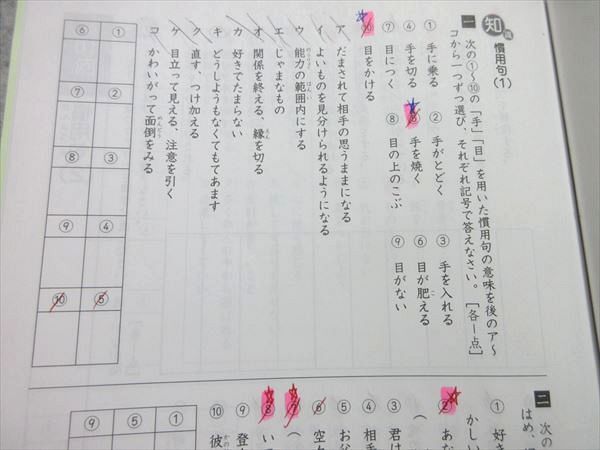 知識
慣用句(1)
一 次の①〜⑩の「手」「目」を用いた慣用句の意味を後のア〜
コから一つずつ選び、それぞれ記号で答えなさい。[各1点]
① 手に乗る ② 手がとどく ③ 手を入れる
④ 手を切る ⑤ 手を焼く ⑥ 目が肥える
⑦ 目につく ⑧ 目の上のこぶ ⑨ 目がない
⑩ 目をかける
ア だまされて相手の思うままになる
イ よいものを見分けられるようになる
ウ 能力の範囲内にする
エ じゃまなもの
オ 関係を終える、縁を切る
カ 好きでたまらない
キ どうしようもなくてもてあます
ク 直す、つけ加える
ケ 目立って見える、注意を引く
コ かわいがって面倒をみる
① ② ③ ④ ⑤
⑥ ⑦ ⑧ ⑨ ⑩
二 次の
はめ、
① 好き
かしい
② あな
(
③ 君は
④ 相手
⑤ お父
⑥ 空
⑦ (
⑧ い
⑨ 登
⑩ 彼
① ⑤ ⑨